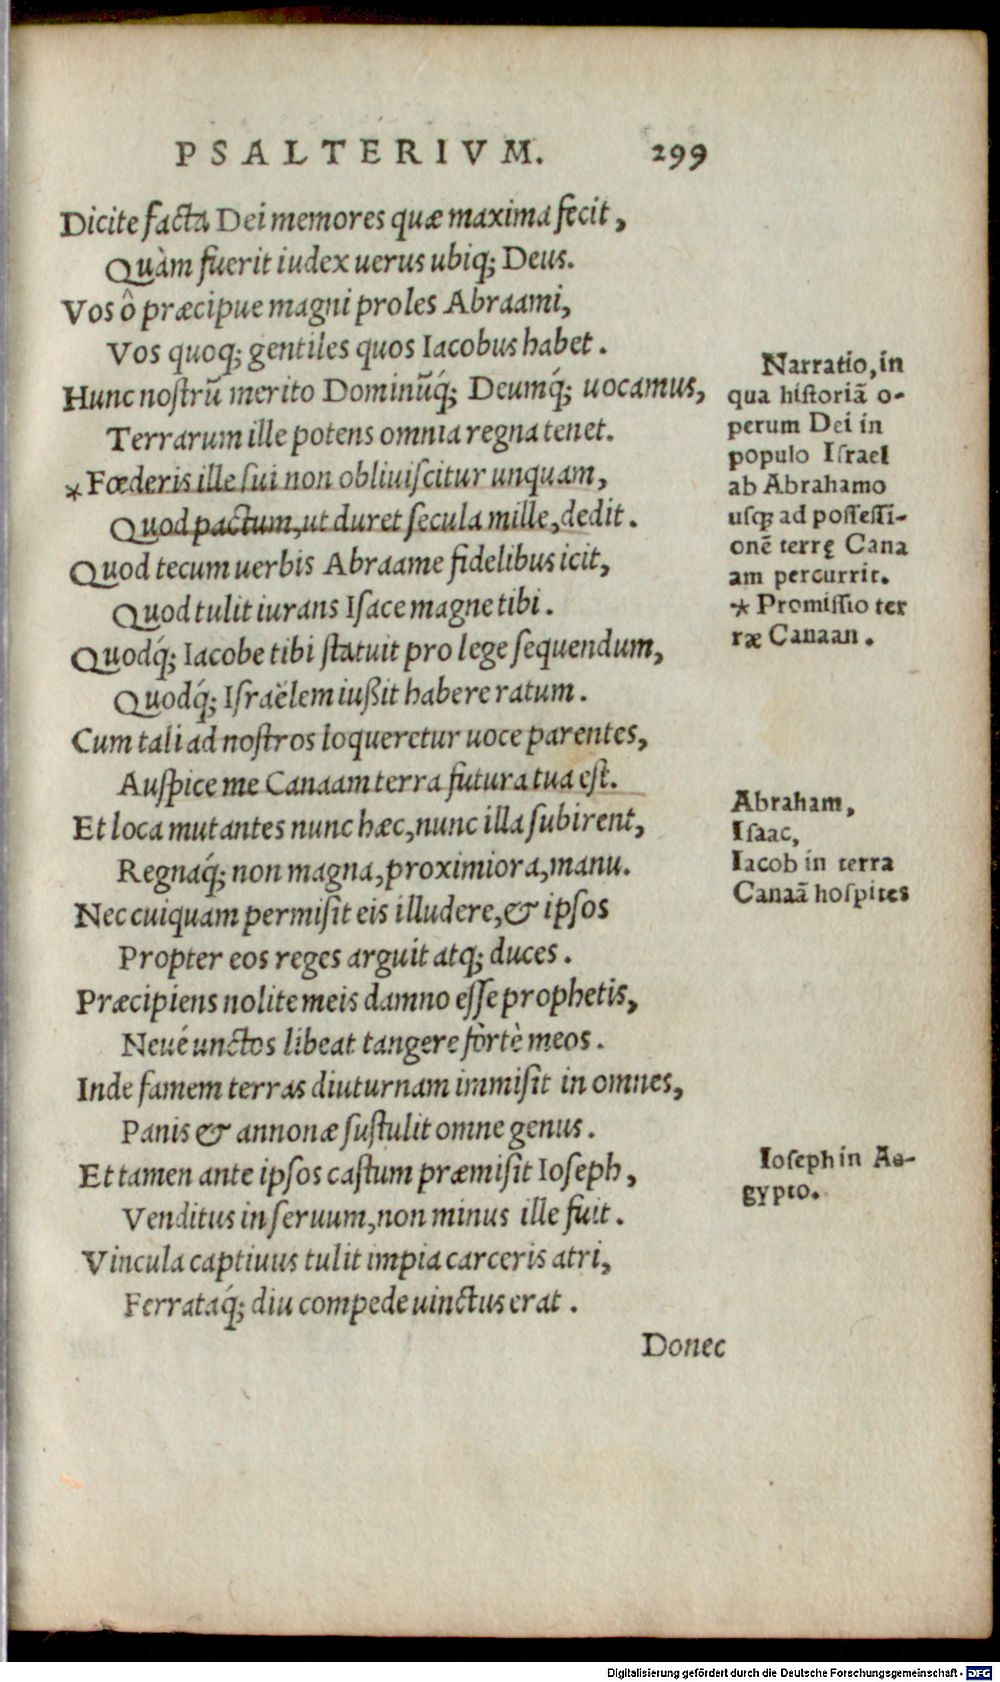 PSALTERIVM. 299
Dicite facta Dei memores quæ maxima fecit,
Quàm fuerit iudex uerus ubiq; Deus.
Vos ô præcipue magni proles Abraami,
Vos quoq; gentiles quos Iacobus habet.
Hunc nostrũ merito Dominũq́; Deumq́; uocamus,
Terrarum ille potens omnia regna tenet.
* Fœderis ille sui non obliuiscitur unquam,
Quod pactum, ut duret secula mille, dedit.
Quod tecum uerbis Abraame fidelibus icit,
Quod tulit iurans Isace magne tibi.
Quodq́; Iacobe tibi statuit pro lege sequendum,
Quodq́; Israëlem iußit habere ratum.
Cum tali ad nostros loqueretur uoce parentes,
Auspice me Canaam terra futura tua est.
Et loca mutantes nunc hæc, nunc illa subirent,
Regnaq́; non magna, proximiora, manu.
Nec cuiquam permisit eis illudere, & ipsos
Propter eos reges arguit atq; duces.
Præcipiens nolite meis damno esse prophetis,
Neué unctos libeat tangere fòrtè meos.
Inde famem terras diuturnam immisit in omnes,
Panis & annonæ sustulit omne genus.
Et tamen ante ipsos castum præmisit Ioseph,
Venditus in seruum, non minus ille fuit.
Vincula captiuus tulit impia carceris atri,
Ferrataq́; diu compede uinctus erat.
Donec
Narratio, in
qua historiã o-
perum Dei in
populo Israel
ab Abrahamo
usq; ad possessi-
onẽ terrę Cana
am percurrit.
* Promissio ter
ræ Canaan.
Abraham,
Isaac,
Iacob in terra
Canaã hospites
Ioseph in Ae-
gypto.
Digitalisierung gefördert durch die Deutsche Forschungsgemeinschaft - DFG